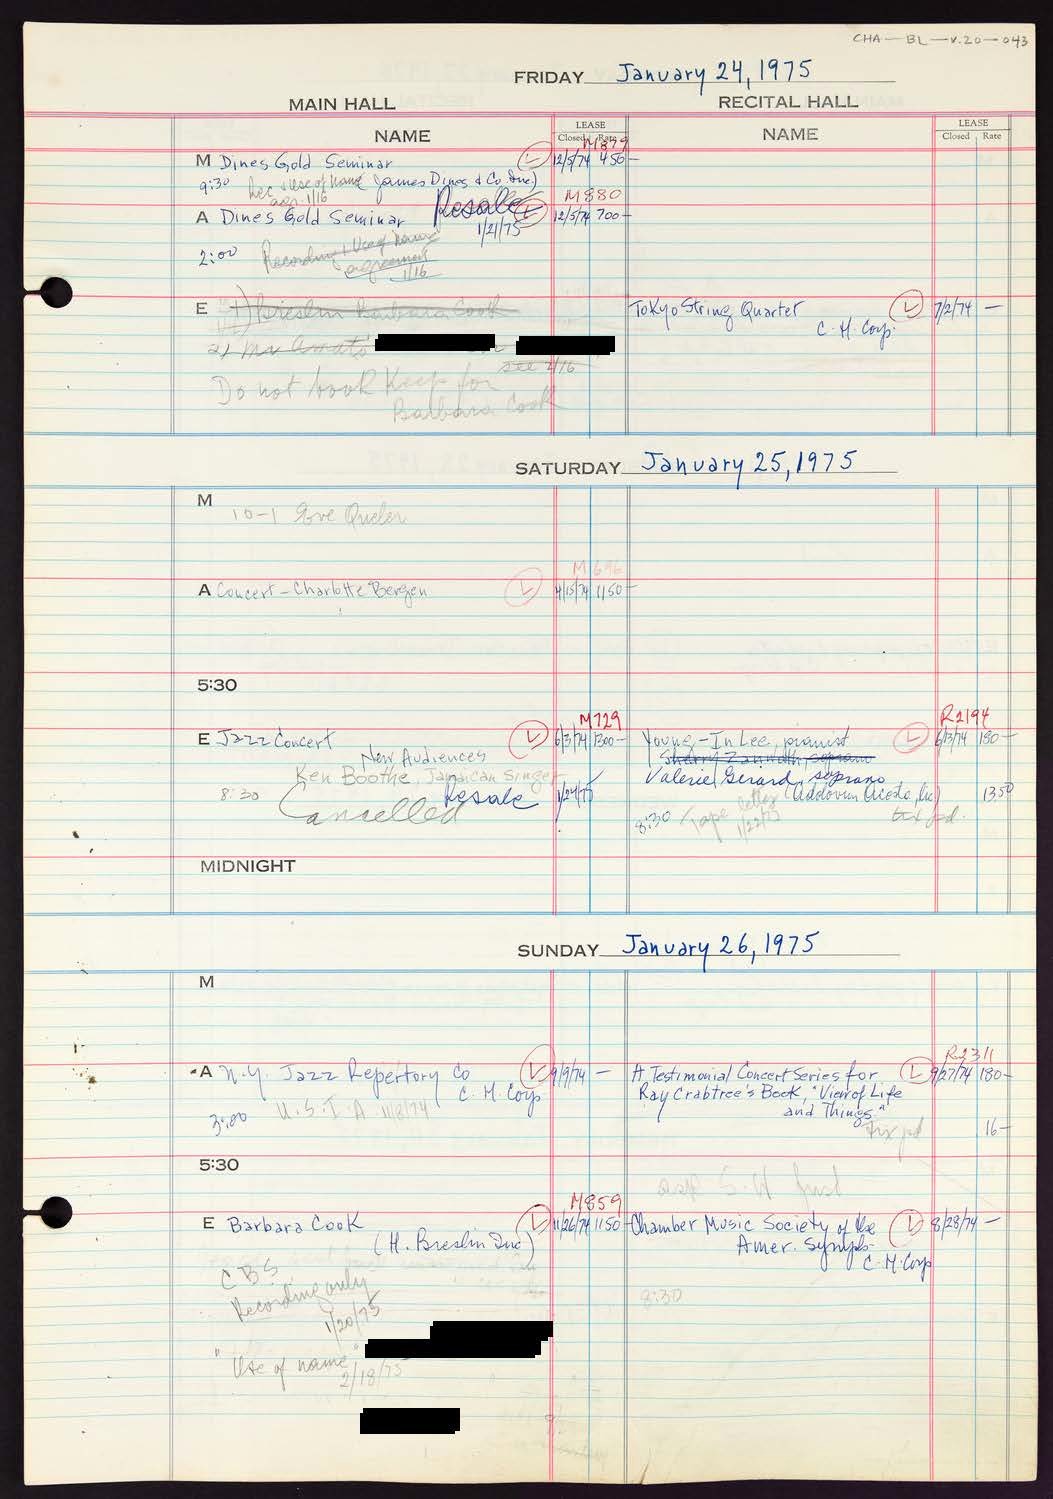 CHA-BL-V.20-043
FRIDAY January 24, 1975
MAIN HALL RECITAL HALL
NAME LEASE Closed Rate NAME LEASE Closed Rate
M879
M Dines Gold Seminar L 12/5/74 450-
9:30 Rec & Use of Name James Dines & Co. Inc)
agr. 1/16
M880
A Dines Gold Seminar Resale L 12/5/74 700-
1/21/75
2:00 Recording & Use of Name
agreement
1/16
E 1) Breslin Barbara Cook Tokyo String Quartet L 7/2/74 -
C.H. Corp.
2) Mr Amato
see 1/16
Do not book Keep for
Barbara Cook
SATURDAY January 25, 1975
M
10-1 Eve Queler
M 696
A Concert - Charlotte Bergen L 4/15/74 1150-
5:30
M729 R2194
E Jazz Concert L 6/3/74 1300- Young-In Lee, pianist L 6/13/74 180-
New Audiences Sherry Zannoth soprano
Ken Boothe, Jamaican Singer Valerie Gerard, soprano
8:30 Resale 1/24/75 13.50
Cancelled 8:30 Tape letter
1/22/75
MIDNIGHT
SUNDAY January 26, 1975
M
R2311
A N.Y. Jazz Repertory Co L 9/9/74 - A Testimonial Concert Series for L 9/27/74 180-
C.H. Corp Ray Crabtree's Book, "View of Life
3:00 U.S.I.A. 11/8/74 and Things"
16-
5:30
M859
E Barbara Cook L 11/26/74 1150 Chamber Music Society of the L 8/28/74 -
(H. Breslin Inc) Amer. Symph-
C.H. Corp
CBS
Recording only 8:30
1/20/75
"Use of name"
2/18/75